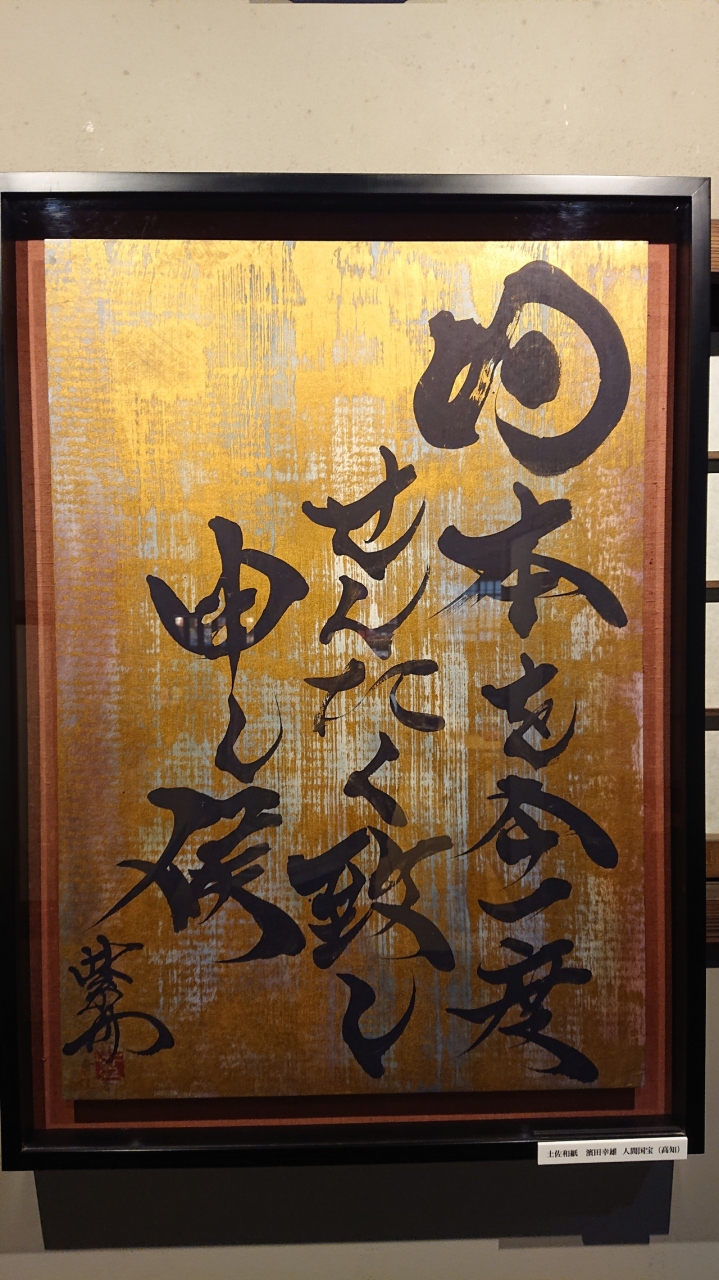 日本を今一度
せんたく致し
申し候
紫舟
土佐和紙　濱田幸雄　人間国宝（高知）